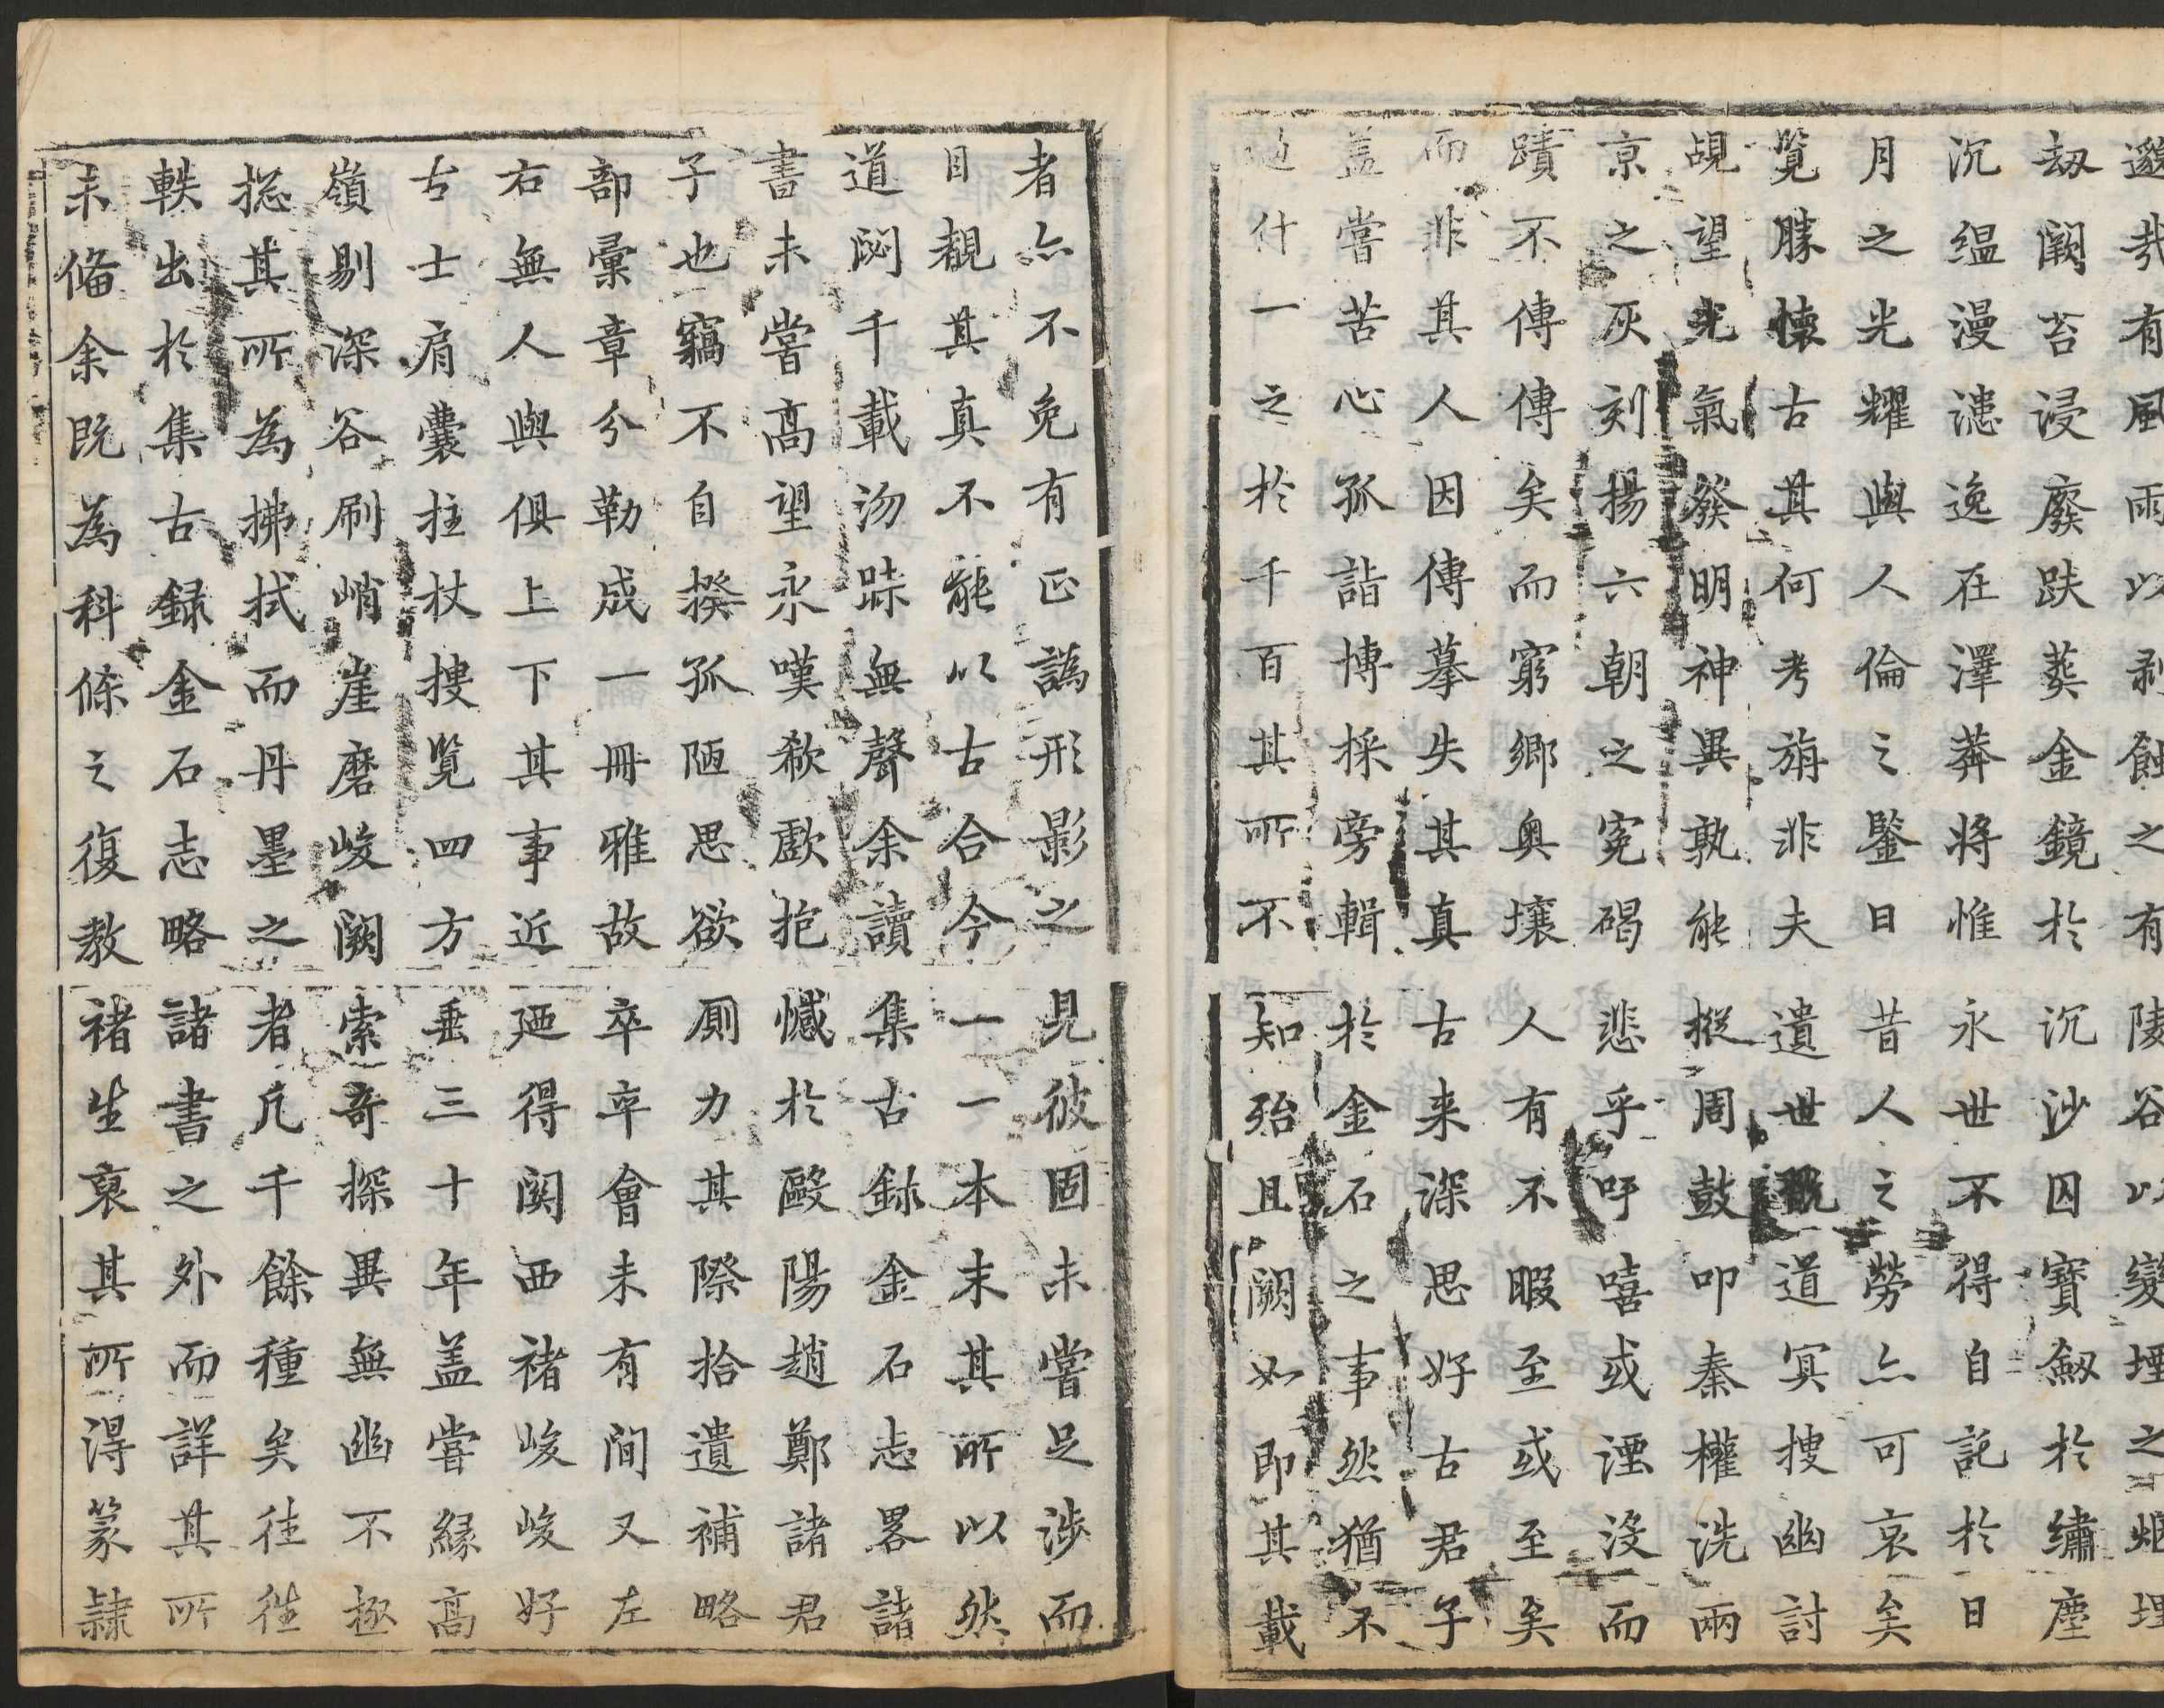 邈哉有風雨以剥蝕之有陵谷以變堙之煙埋
劫闕苔浸廢趺葬金鏡於沉沙囚寶劔於繡塵
沉緼漫漶逸在澤莽將惟永世不得自託於日
月之光耀與人倫之鑒日昔人之勞亦可哀矣
覧勝懐古其何考旃非夫遺世翫道㝠搜幽討
覘望光氣發明神異孰能摐周鼓叩秦權洗兩
京之灰刻揚六朝之寃碣悲乎吁嘻或湮沒而
蹟不傳傳矣而窮郷奥壤人有不暇至或至矣
而非其人因傳摹失其真古来深思好古君子
盖嘗苦心孤詣博採旁輯於金石之事然猶不
什一之於千百其所不知殆且闕如即其載
者亦不免有正譌形影之見彼固未嘗足渉而
目覩其真不能以古合今一一本末其所以然
道閟千載沕跡無聲余讀集古録金石志畧諸
書未嘗髙望永嘆欷歔抱憾於歐陽趙鄭諸君
子也竊不自揆孤陋思欲厠力其際拾遺補略
部彚章分勒成一冊雅故卒卒會未有間又左
右無人與俱上下其事近廼得関西褚峻峻好
古士肩囊拄杖搜覧四方垂三十年盖嘗緣髙
嶺剔深谷刷峭崖磨峻闕索奇探異無幽不極
捴其所為拂拭而丹墨之者凢千餘種矣徃徃
軼出於集古録金石志略諸書之外而詳其所
未僃余既為科條之復教褚生裒其所得篆隷